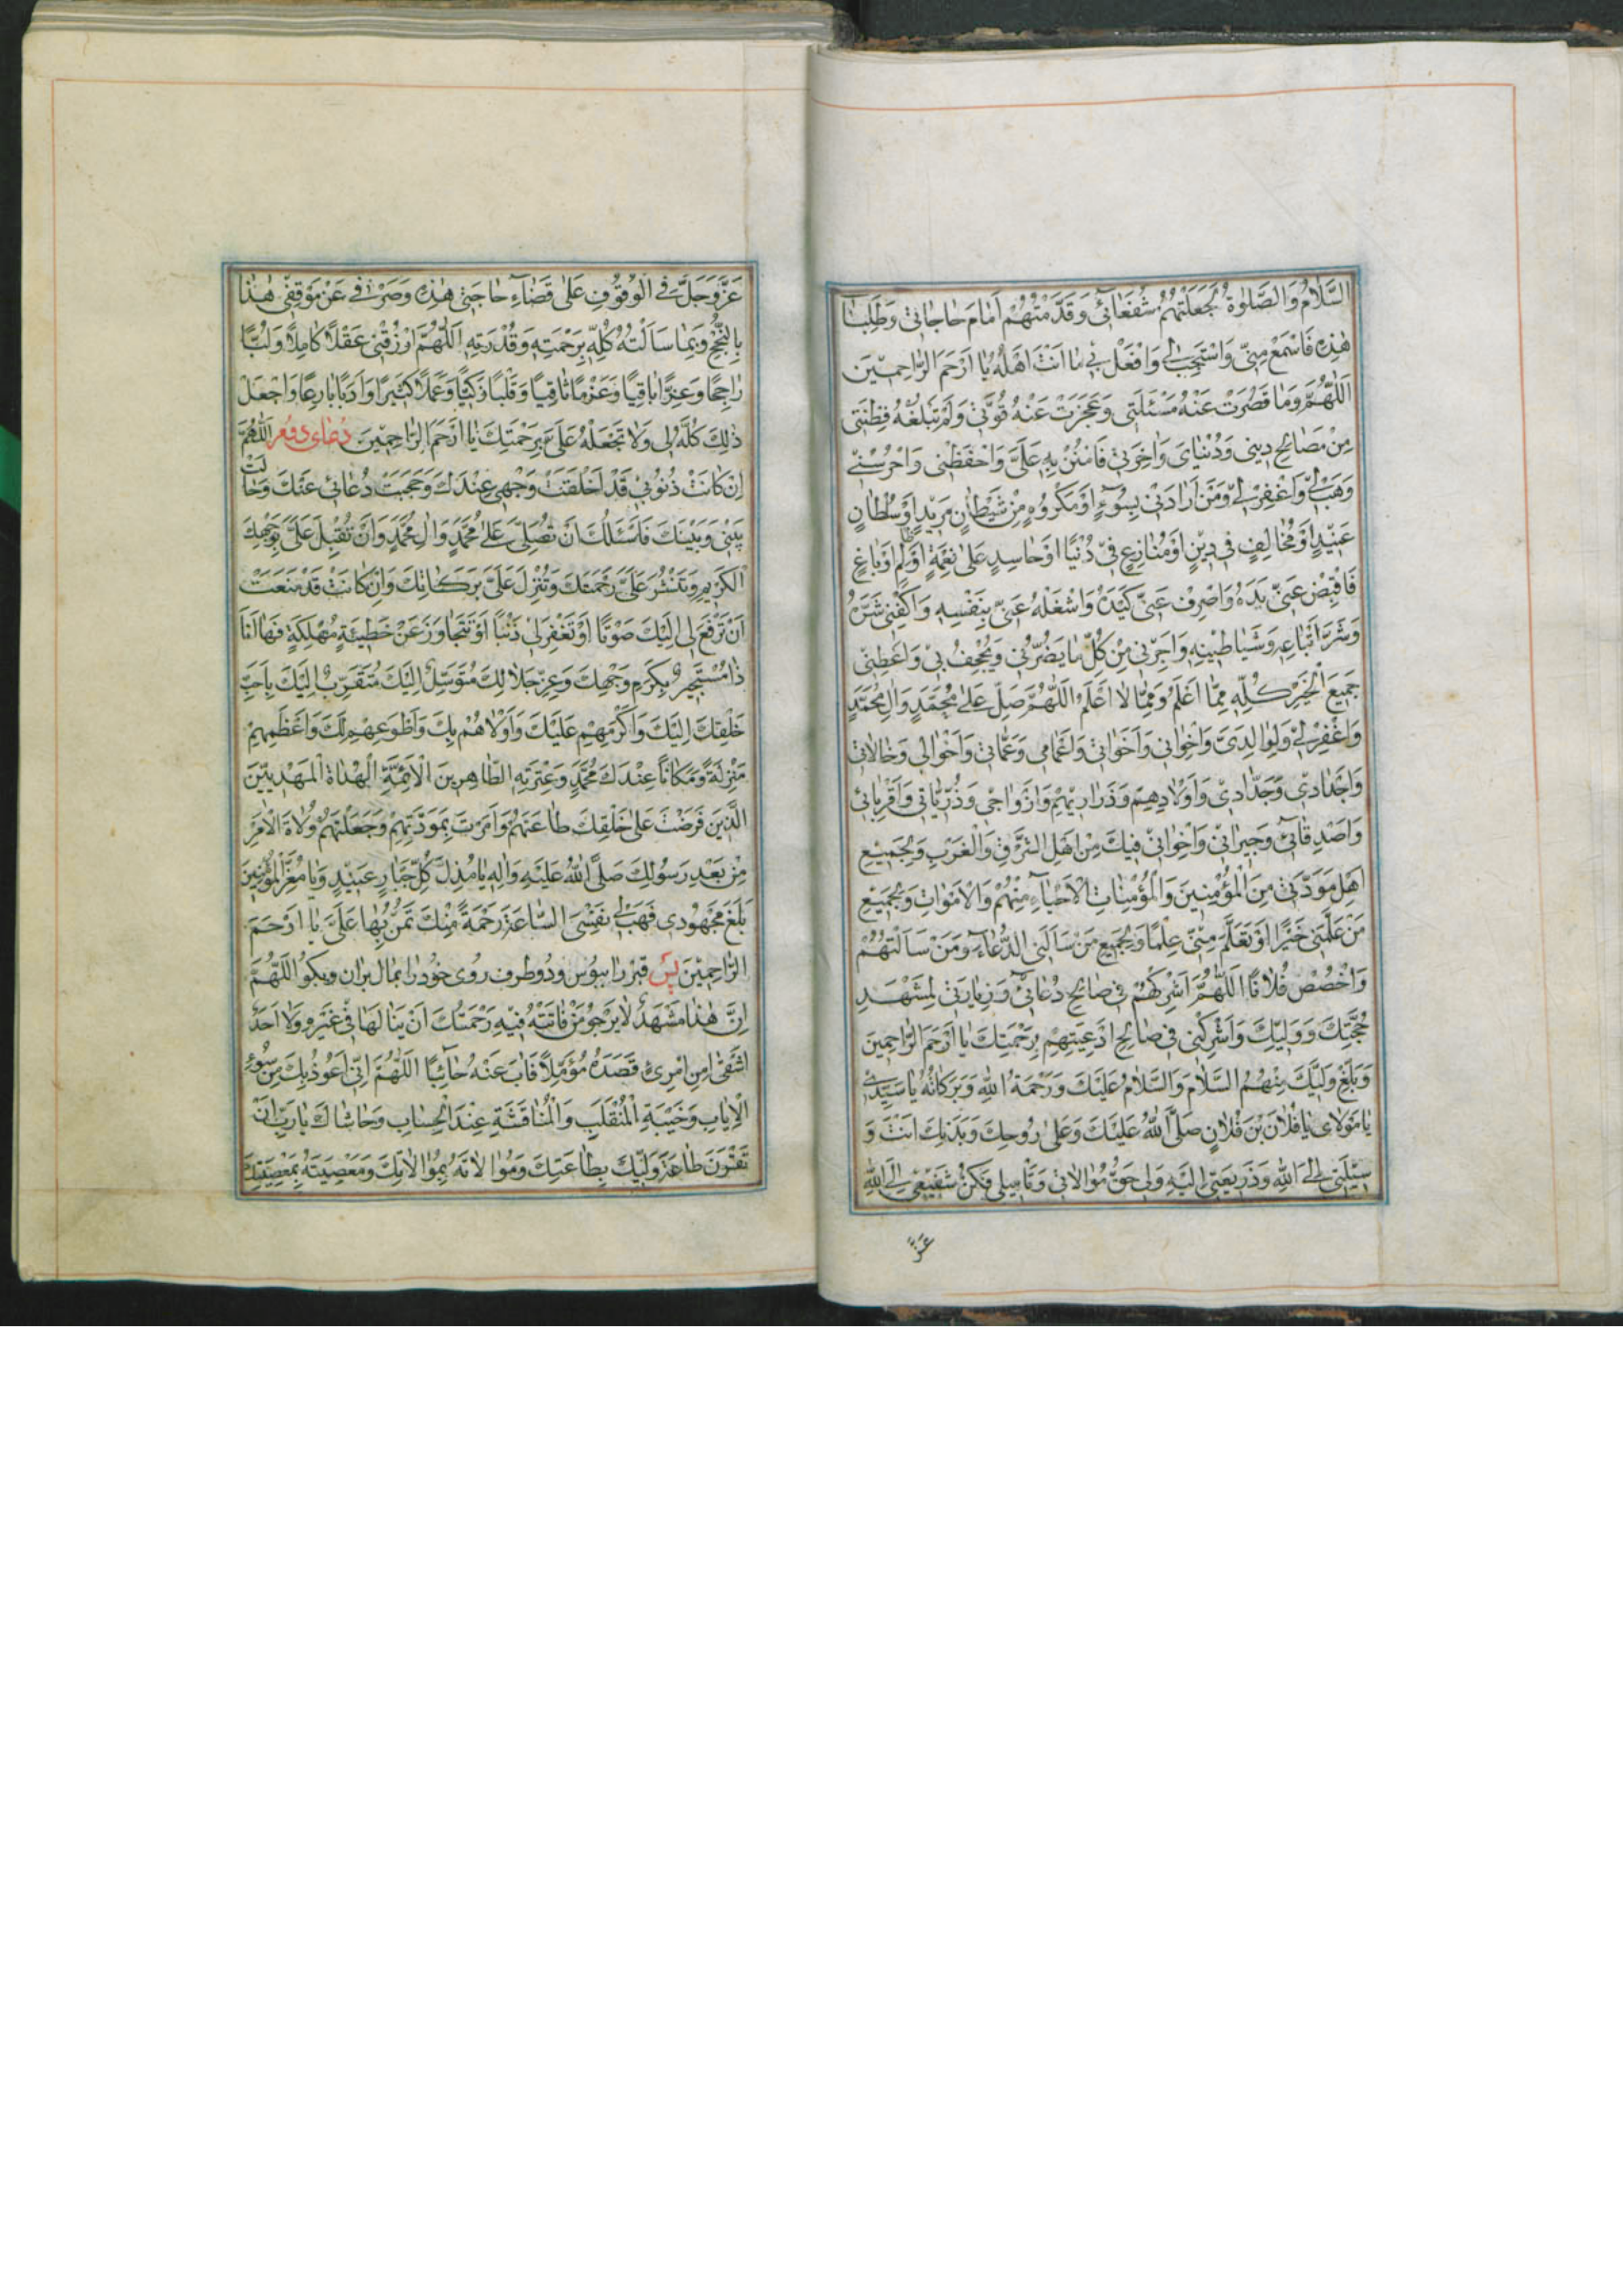 السَّلَامُ وَالصَّلَوٰةُ فَجَعَلْتُهُمْ شُفَعَائِي وَقَدَّمْتُهُمْ أَمَامَ حَاجَاتِي وَطَلِبَاتِي
هٰذِهِ فَاسْمَعْ مِنِّي وَاسْتَجِبْ لِي وَافْعَلْ بِي مَا أَنْتَ أَهْلُهُ يَا أَرْحَمَ الرَّاحِمِينَ
اَللّٰهُمَّ وَمَا قَصُرَتْ عَنْهُ مَسْئَلَتِي وَعَجَزَتْ عَنْهُ قُوَّتِي وَلَمْ تَبْلُغْهُ فِطْنَتِي
مِنْ مَصَالِحِ دِينِي وَدُنْيَايَ وَاخِرَتِي فَامْنُنْ بِهِ عَلَيَّ وَاحْفَظْنِي وَاحْرُسْنِي
وَهَبْ لِي وَاغْفِرْ لِي وَمَنْ أَرَادَنِي بِسُوءٍ أَوْ مَكْرُوهٍ مِنْ شَيْطَانٍ مَرِيدٍ أَوْ سُلْطَانٍ
عَنِيدٍ أَوْ مُخَالِفٍ فِي دِينٍ أَوْ مُنَازِعٍ فِي دُنْيَا أَوْ حَاسِدٍ عَلَىٰ نِعْمَةٍ أَوْ ظَالِمٍ أَوْ بَاغٍ
فَاقْبِضْ عَنِّي يَدَهُ وَاصْرِفْ عَنِّي كَيْدَهُ وَاشْغَلْهُ عَنِّي بِنَفْسِهِ وَاكْفِنِي شَرَّهُ
وَشَرَّ أَتْبَاعِهِ وَشَيَاطِينِهِ وَأَجِرْنِي مِنْ كُلِّ مَا يَضُرُّنِي وَيُجْحِفُ بِي وَأَعْطِنِي
جَمِيعَ الْخَيْرِ كُلِّهِ مِمَّا أَعْلَمُ وَمِمَّا لَا أَعْلَمُ اَللّٰهُمَّ صَلِّ عَلَىٰ مُحَمَّدٍ وَالِ مُحَمَّدٍ
وَاغْفِرْ لِي وَلِوَالِدَيَّ وَلِإِخْوَانِي وَأَخَوَاتِي وَأَعْمَامِي وَعَمَّاتِي وَأَخْوَالِي وَخَالَاتِي
وَأَجْدَادِي وَجَدَّاتِي وَأَوْلَادِهِمْ وَذَرَارِيهِمْ وَأَزْوَاجِي وَذُرِّيَّاتِي وَأَقْرِبَائِي
وَأَصْدِقَائِي وَجِيرَانِي وَإِخْوَانِي فِيكَ مِنْ أَهْلِ الشَّرْقِ وَالْغَرْبِ وَلِجَمِيعِ
أَهْلِ مَوَدَّتِي مِنَ الْمُؤْمِنِينَ وَالْمُؤْمِنَاتِ الْأَحْيَاءِ مِنْهُمْ وَالْأَمْوَاتِ وَلِجَمِيعِ
مَنْ عَلَّمَنِي خَيْرًا أَوْ تَعَلَّمَ مِنِّي عِلْمًا وَلِجَمِيعِ مَنْ سَأَلَنِي الدُّعَاءَ وَمَنْ سَأَلْتُهُمْ
وَاخْصُصْ فُلَانًا اَللّٰهُمَّ أَشْرِكْهُمْ فِي صَالِحِ دُعَائِي وَزِيَارَتِي لِمَشْهَدِ
حُجَّتِكَ وَوَلِيِّكَ وَأَشْرِكْنِي فِي صَالِحِ أَدْعِيَتِهِمْ بِرَحْمَتِكَ يَا أَرْحَمَ الرَّاحِمِينَ
وَبَلِّغْ وَلِيَّكَ مِنْهُمُ السَّلَامَ وَالسَّلَامُ عَلَيْكَ وَرَحْمَةُ اللهِ وَبَرَكَاتُهُ يَا سَيِّدِي
يَا مَوْلَايَ يَا فُلَانَ بْنَ فُلَانٍ صَلَّى اللهُ عَلَيْكَ وَعَلَىٰ رُوحِكَ وَبَدَنِكَ أَنْتَ وَ
سِيلَتِي إِلَى اللهِ وَذَرِيعَتِي إِلَيْهِ وَلِي حَقُّ مُوَالَاتِي وَتَأْمِيلِي فَكُنْ شَفِيعِي إِلَى اللهِ
عَزَّ
عَزَّ وَجَلَّ فِي الْوُقُوفِ عَلَىٰ قَضَاءِ حَاجَتِي هٰذِهِ وَصَرْفِي عَنْ مَوْقِفِي هٰذَا
بِالنُّجْحِ وَبِمَا سَأَلْتُهُ كُلِّهِ بِرَحْمَتِهِ وَقُدْرَتِهِ اَللّٰهُمَّ ارْزُقْنِي عَقْلًا كَامِلًا وَلُبًّا
رَاجِحًا وَعِزًّا بَاقِيًا وَعَزْمًا ثَاقِبًا وَقَلْبًا زَكِيًّا وَعَمَلًا كَثِيرًا وَأَدَبًا بَارِعًا وَاجْعَلْ
ذٰلِكَ كُلَّهُ لِي وَلَا تَجْعَلْهُ عَلَيَّ بِرَحْمَتِكَ يَا أَرْحَمَ الرَّاحِمِينَ دُعَاى اَللّٰهُمَّ
إِنْ كَانَتْ ذُنُوبِي قَدْ أَخْلَقَتْ وَجْهِي عِنْدَكَ وَحَجَبَتْ دُعَائِي عَنْكَ وَحَالَتْ
بَيْنِي وَبَيْنَكَ فَأَسْئَلُكَ أَنْ تُصَلِّيَ عَلَىٰ مُحَمَّدٍ وَالِ مُحَمَّدٍ وَأَنْ تُقْبِلَ عَلَيَّ بِوَجْهِكَ
الْكَرِيمِ وَتَنْشُرَ عَلَيَّ رَحْمَتَكَ وَتُنْزِلَ عَلَيَّ بَرَكَاتِكَ وَإِنْ كَانَتْ قَدْ مَنَعَتْ
أَنْ تَرْفَعَ لِي إِلَيْكَ صَوْتًا أَوْ تَغْفِرَ لِي ذَنْبًا أَوْ تَتَجَاوَزَ عَنْ خَطِيئَةٍ مُهْلِكَةٍ فَهَا أَنَا
ذَا مُسْتَجِيرٌ بِكَرَمِ وَجْهِكَ وَعِزِّ جَلَالِكَ مُتَوَسِّلٌ إِلَيْكَ مُتَقَرِّبٌ إِلَيْكَ بِأَحَبِّ
خَلْقِكَ إِلَيْكَ وَأَكْرَمِهِمْ عَلَيْكَ وَأَوْلَاهُمْ بِكَ وَأَطْوَعِهِمْ لَكَ وَأَعْظَمِهِمْ
مَنْزِلَةً وَمَكَانًا عِنْدَكَ مُحَمَّدٍ وَعِتْرَتِهِ الطَّاهِرِينَ الْأَئِمَّةِ الْهُدَاةِ الْمَهْدِيِّينَ
الَّذِينَ فَرَضْتَ عَلَىٰ خَلْقِكَ طَاعَتَهُمْ وَأَمَرْتَ بِمَوَدَّتِهِمْ وَجَعَلْتَهُمْ وُلَاةَ الْأَمْرِ
مِنْ بَعْدِ رَسُولِكَ صَلَّى اللهُ عَلَيْهِ وَالِهِ يَا مُذِلَّ كُلِّ جَبَّارٍ عَنِيدٍ وَيَا مُعِزَّ الْمُؤْمِنِينَ
بَلَغَ مَجْهُودِي فَهَبْ لِي نَفْسِي السَّاعَةَ وَرَحْمَةً مِنْكَ تَمُنُّ بِهَا عَلَيَّ يَا أَرْحَمَ
الرَّاحِمِينَ پس قبر را ببوس ودو طرف روى خود را بمال بران وبكو اَللّٰهُمَّ
إِنَّ هٰذَا مَشْهَدٌ لَا يَرْجُو مَنْ فَاتَتْهُ فِيهِ رَحْمَتُكَ أَنْ يَنَالَهَا فِي غَيْرِهِ وَلَا أَحَدٌ
أَشْقَىٰ مِنِ امْرِئٍ قَصَدَهُ مُؤَمِّلًا فَابَ عَنْهُ خَائِبًا اَللّٰهُمَّ إِنِّي أَعُوذُ بِكَ مِنْ سُوءِ
الْإِيَابِ وَخَيْبَةِ الْمُنْقَلَبِ وَالْمُنَاقَشَةِ عِنْدَ الْحِسَابِ وَحَاشَاكَ يَا رَبِّ أَنْ
تَقْرِنَ طَاعَةَ وَلِيِّكَ بِطَاعَتِكَ وَمُوَالَاتَهُ بِمُوَالَاتِكَ وَمَعْصِيَتَهُ بِمَعْصِيَتِكَ